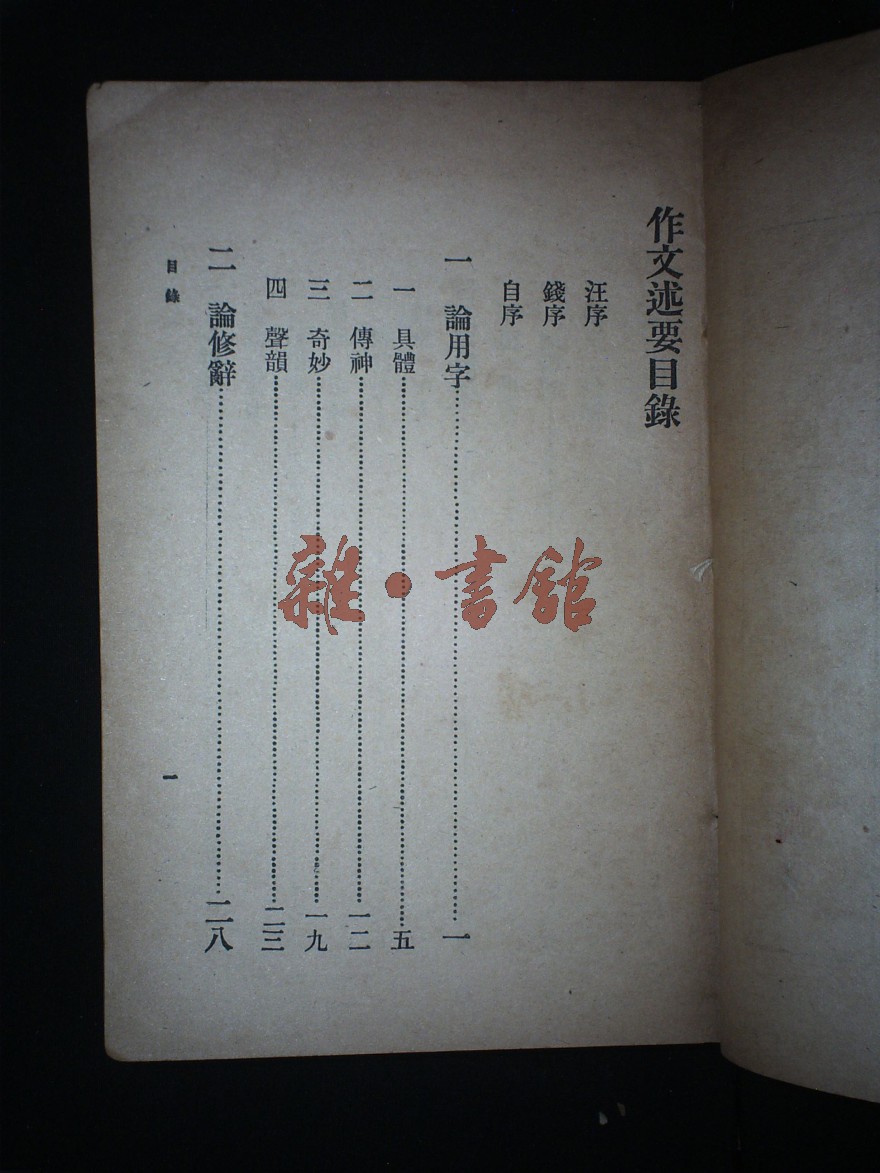 作文述要目錄
汪序
錢序
自序
一 論用字……一
一 具體……五
二 傳神……一二
三 奇妙……一九
四 聲韻……二三
二 論修辭……二八
目錄
一
雜·書館